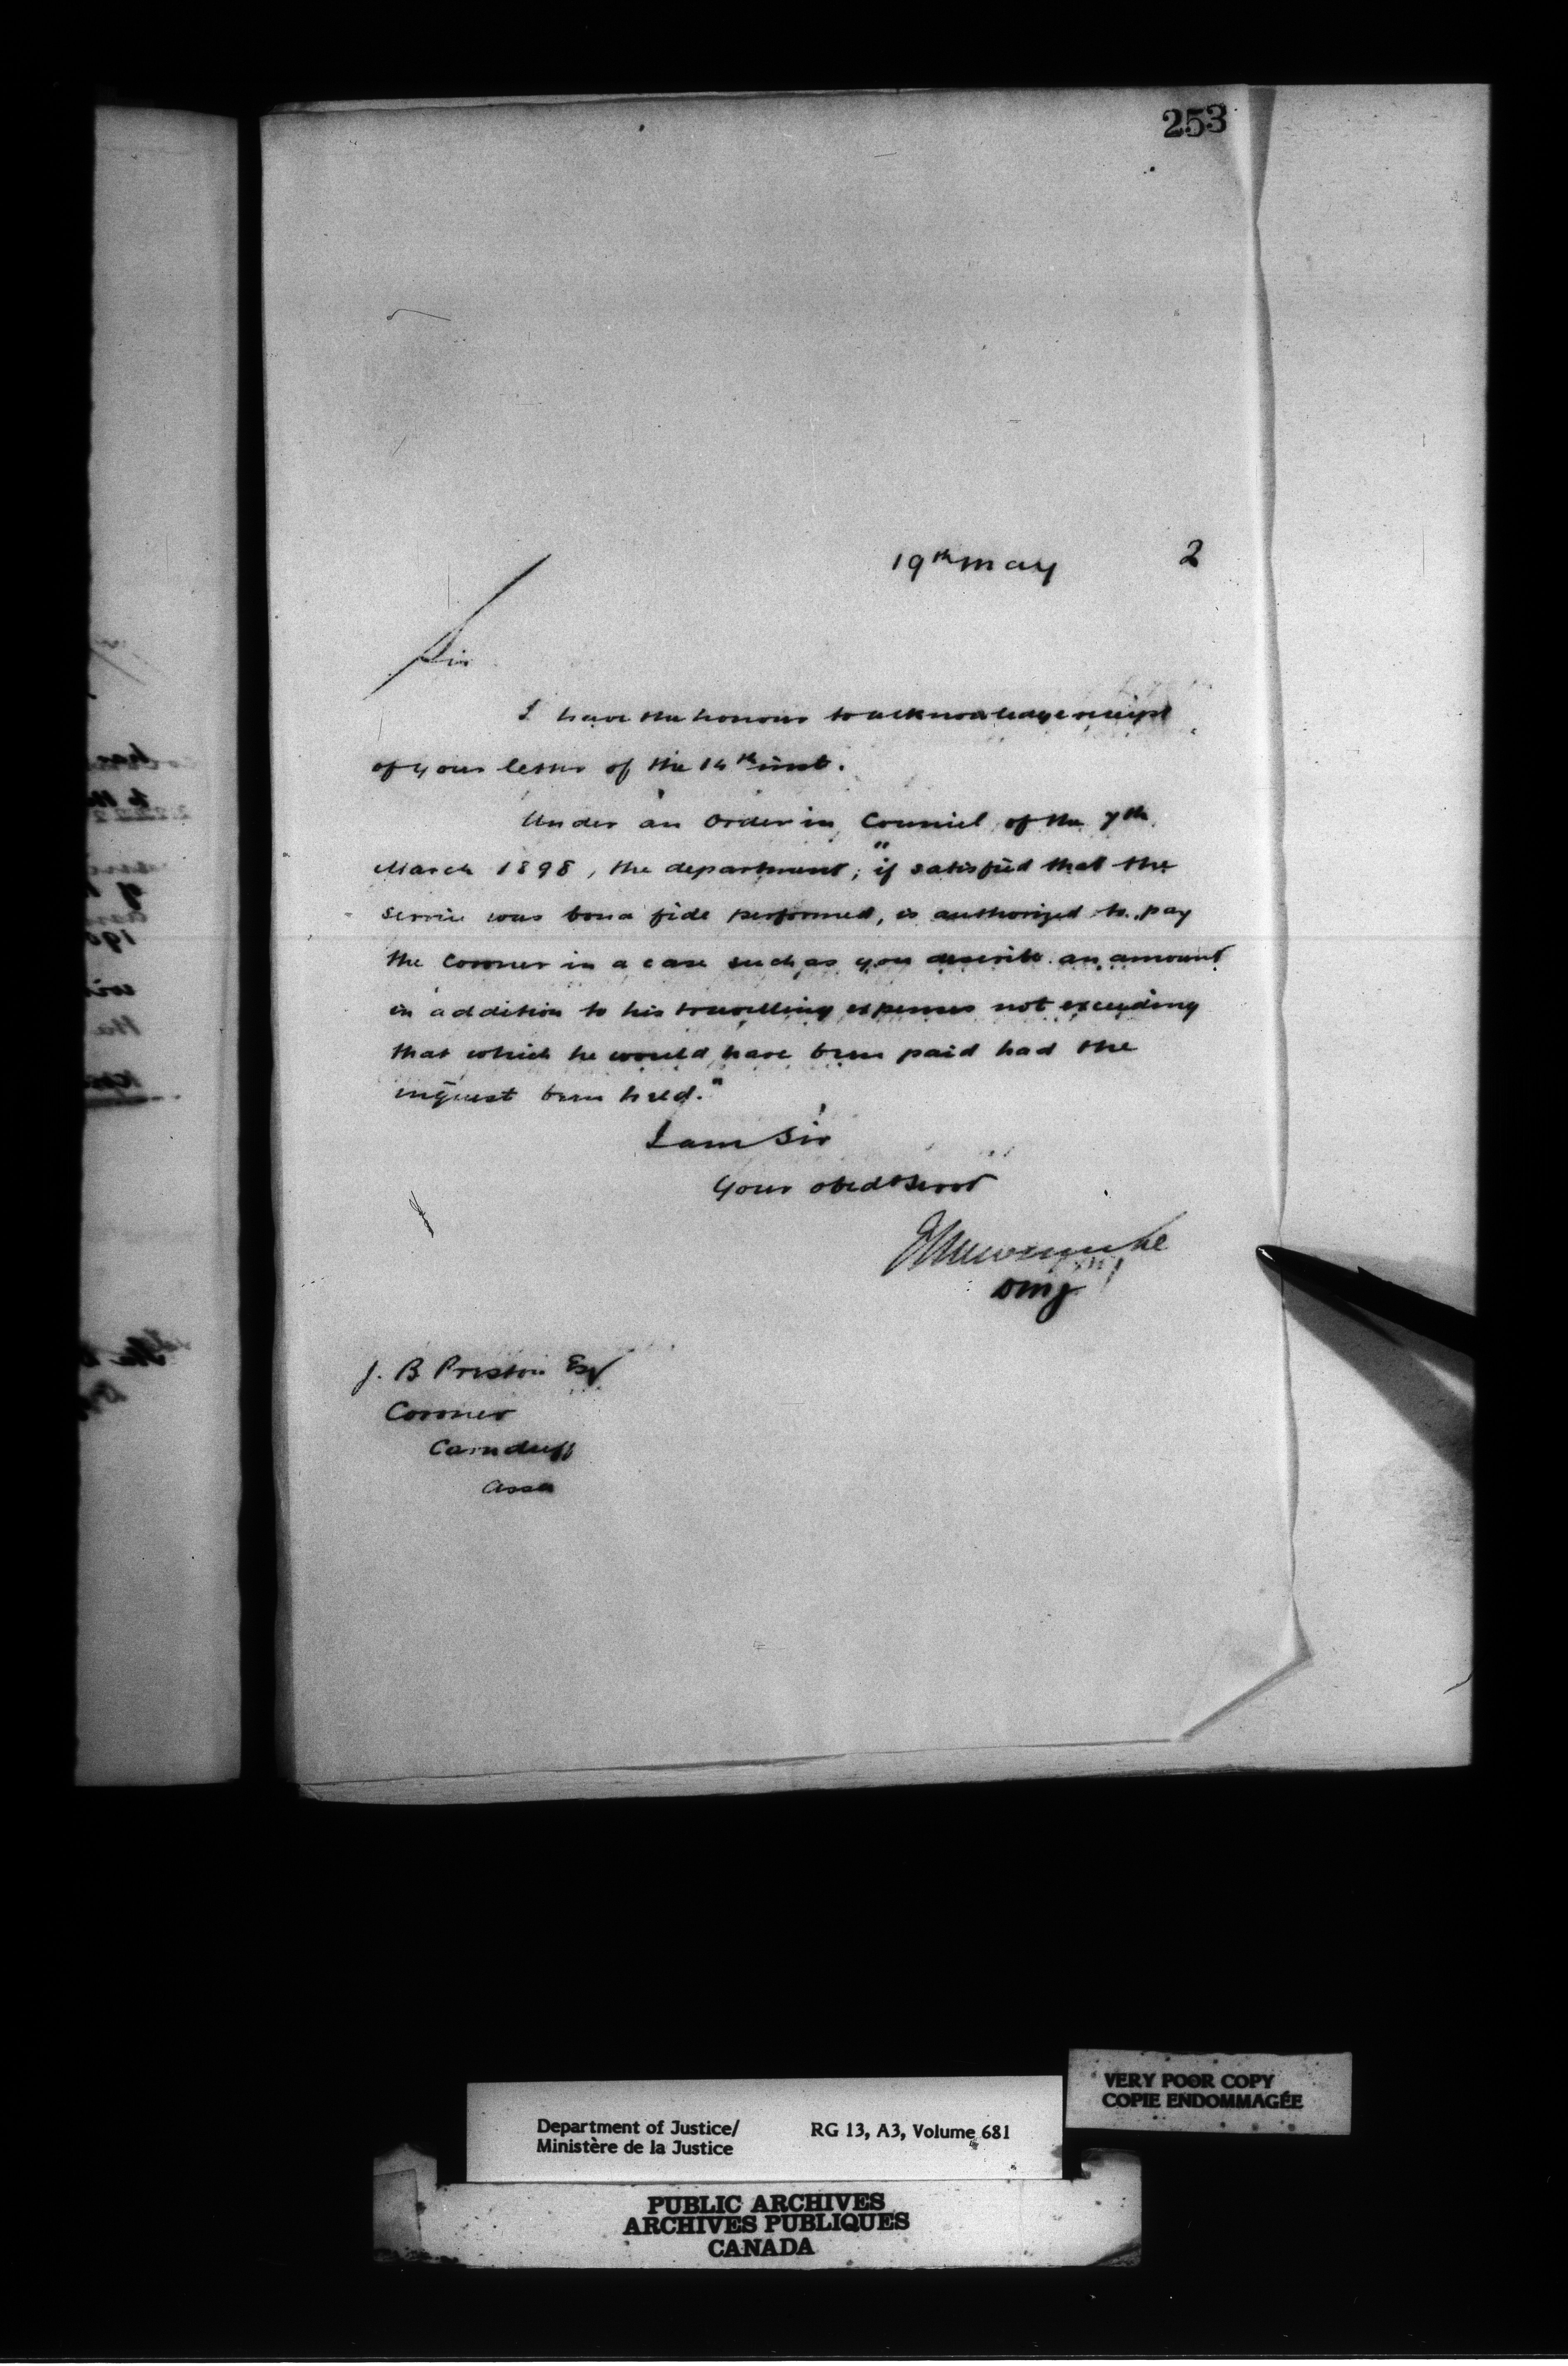 253
19th May 2
Sir
I have the honour to acknowledge receipt
of your letter of the 14th inst.
Under an Order in Council of the 7th
March 1898, the department, "if satisfied that the
service was bona fide performed, is authorized to pay
the Coroner in a case such as you describe an amount
in addition to his travelling expenses not exceeding
that which he would have been paid had the
inquest been held."
I am Sir
Your obedt Servt
E L Newcombe
DMJ
J. B Preston Esq
Coroner
Carnduff
Assa
VERY POOR COPY
COPIE ENDOMMAGÉE
Department of Justice/ RG 13, A3, Volume 681
Ministère de la Justice
PUBLIC ARCHIVES
ARCHIVES PUBLIQUES
CANADA